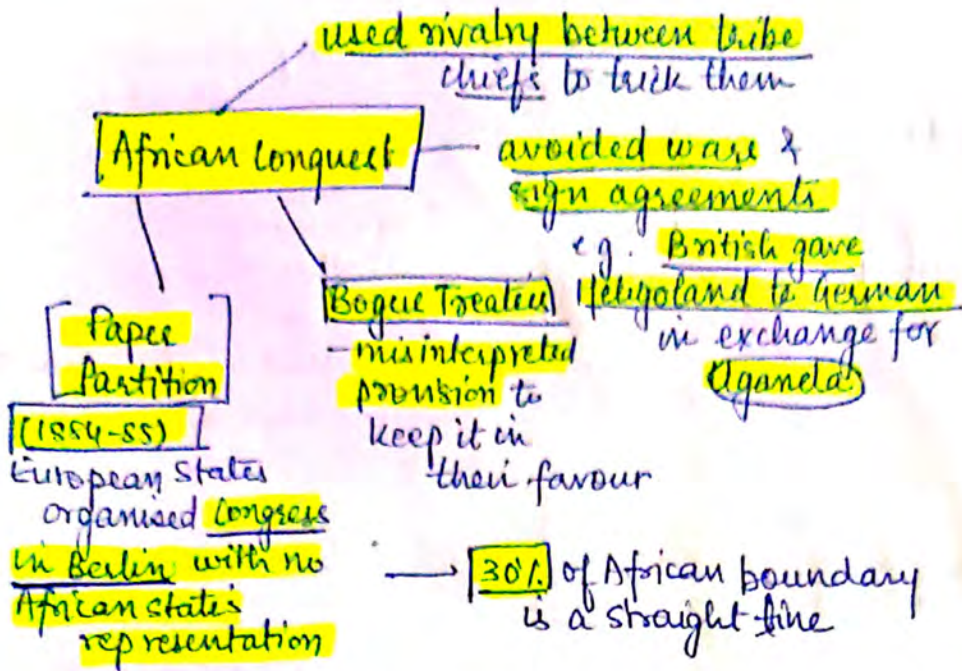 used rivalry between tribe
chiefs to trick them
African Conquest
avoided wars &
sign agreements
eg. British gave
Heligoland to German
in exchange for
Uganda
Bogue Treaties
- misinterpreted
provision to
keep it in
their favour
Paper
Partition
(1884-85)
European states
organised Congress
in Berlin with no
African states
representation
→ 30% of African boundary
is a straight line